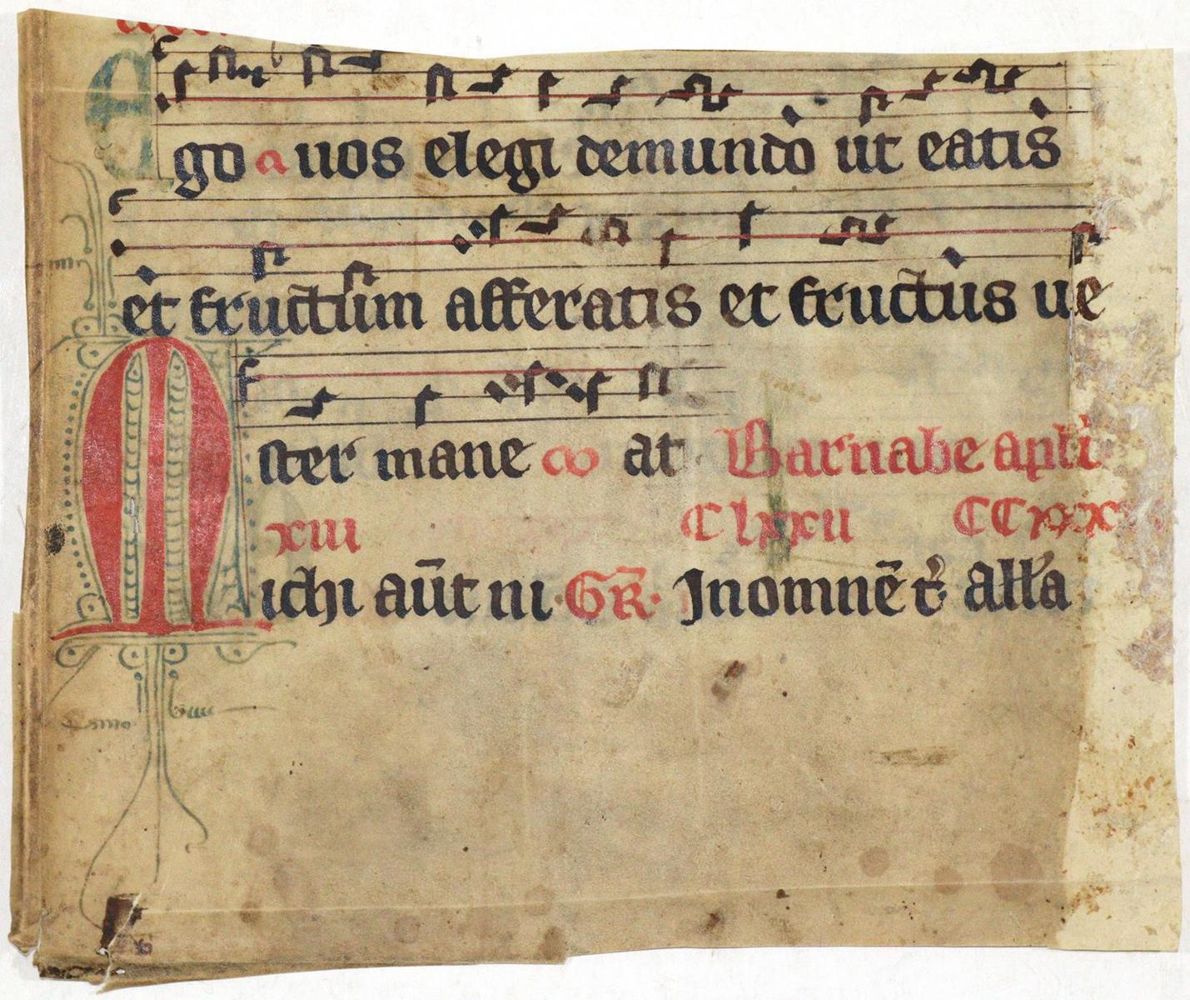 Ego a uos elegi de mundo ut eatis
et fructum afferatis et fructus ue
ster mane at Barnabe apłi
xiii Clxxii CCxxx
Michi aūt ni GR̄ In omnē t alła